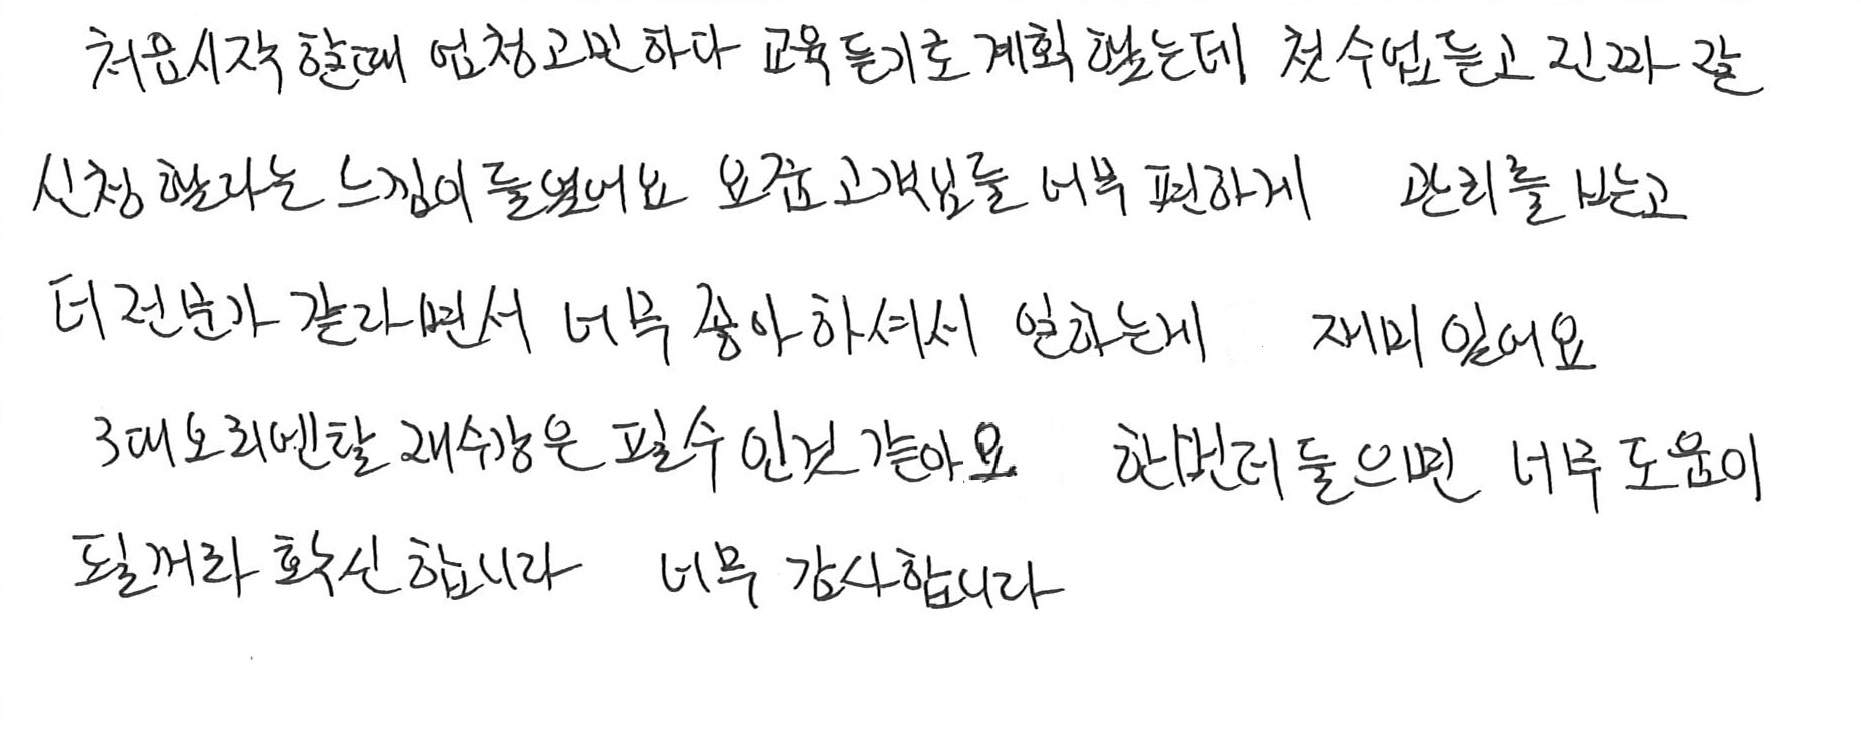 처음시작 할때 엄청고민하다 교육듣기로 계획했는데 첫수업듣고 진짜 잘
신청했다는 느낌이 들었어요 요즘고객님들 너무 편하게 관리를 받는고
더 전문가 같다면서 너무 좋아하셔서 일하는게 재미있어요
3대오리엔탈 재수강은 필수인것 같아요 한번더 들으면 너무 도움이
될꺼라 확신합니다 너무 감사합니다